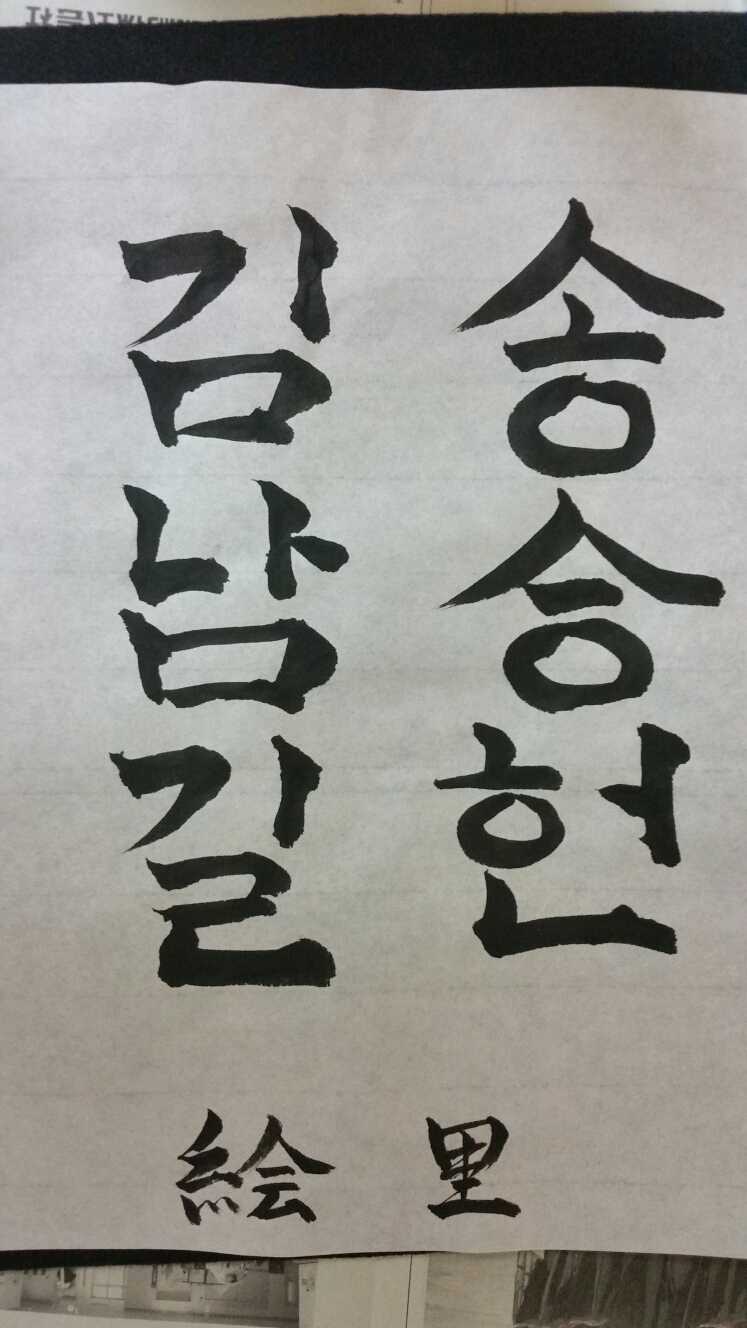 송승헌
김남길
絵里